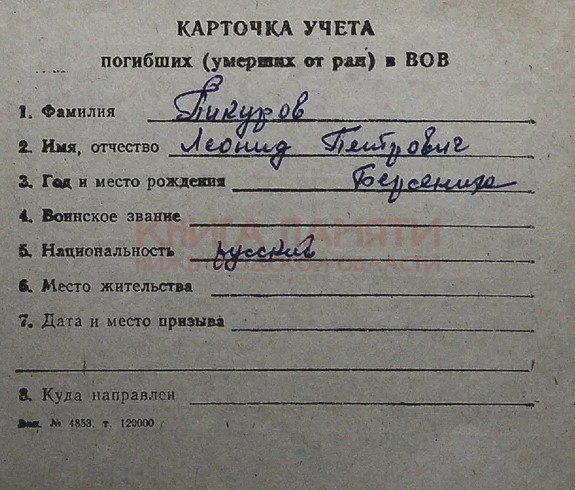 КАРТОЧКА УЧЕТА
погибших (умерших от ран) в ВОВ
1. Фамилия Пикуров
2. Имя, отчество Леонид Петрович
3. Год и место рождения Берсениха
4. Воинское звание
КНИГА ПАМЯТИ
5. Национальность русский
НИЖЕГОРОДСКОЙ ОБЛАСТИ
6. Место жительства
7. Дата и место призыва
8. Куда направлен
Зак. № 4853, т. 120000